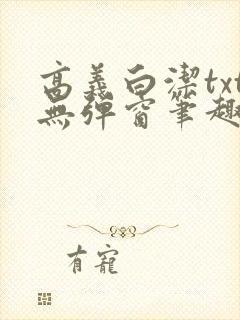 高義白潔txt
無彈窗筆趣
有寵